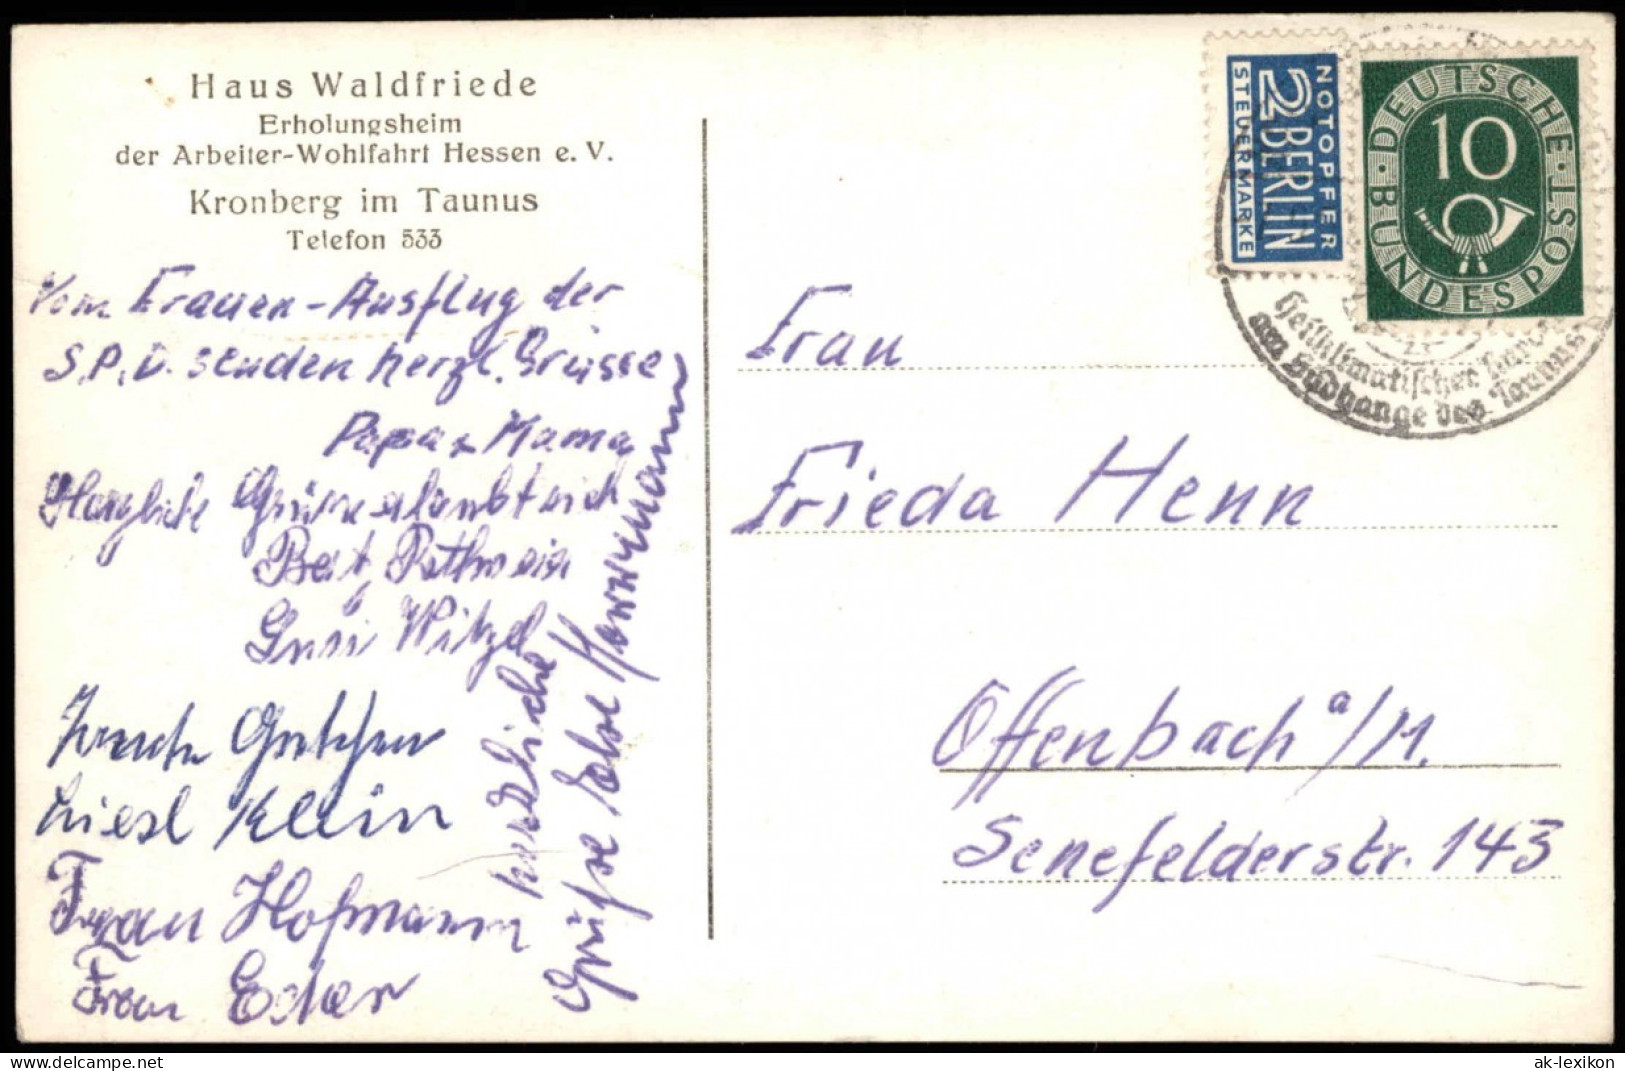 Haus Waldfriede
Erholungsheim
der Arbeiter-Wohlfahrt Hessen e. V.
Kronberg im Taunus
Telefon 533
Vom Frauen-Ausflug der
S.P.D. senden herzl. Grüsse
Papa & Mama
Herzliche Grüsse erlaubt sich
Witzel
Liesl Klein
Frau Hofmann
Frau Ecker
herzliche
Grüße
NOTOPFER
2 BERLIN
STEUERMARKE
DEUTSCHE BUNDESPOST
10
Heilklimatischer Kurort
am Südhange des Taunus
Frau
Frieda Henn
Offenbach a/M.
Senefelderstr. 143
hippostcard.com
ak-lexikon